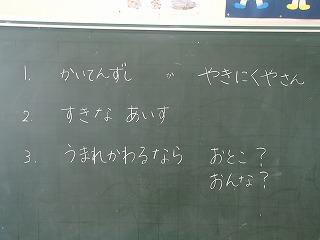 1. かいてんずし か やきにくやさん
2. すきな あいす
3. うまれかわるなら おとこ?
おんな?